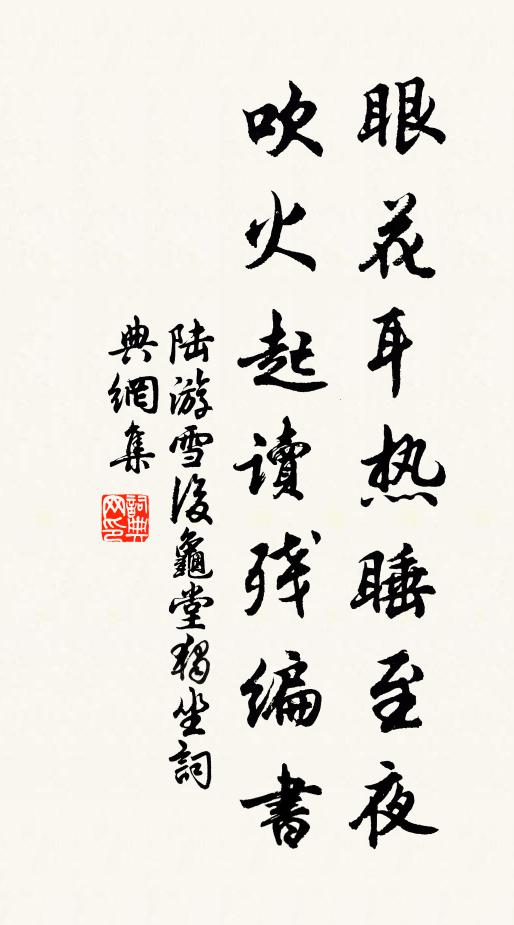 眼花耳热睡至夜
吹火起讀残编書
陆游雪後龜堂獨坐詞
典網集
詞典
网印